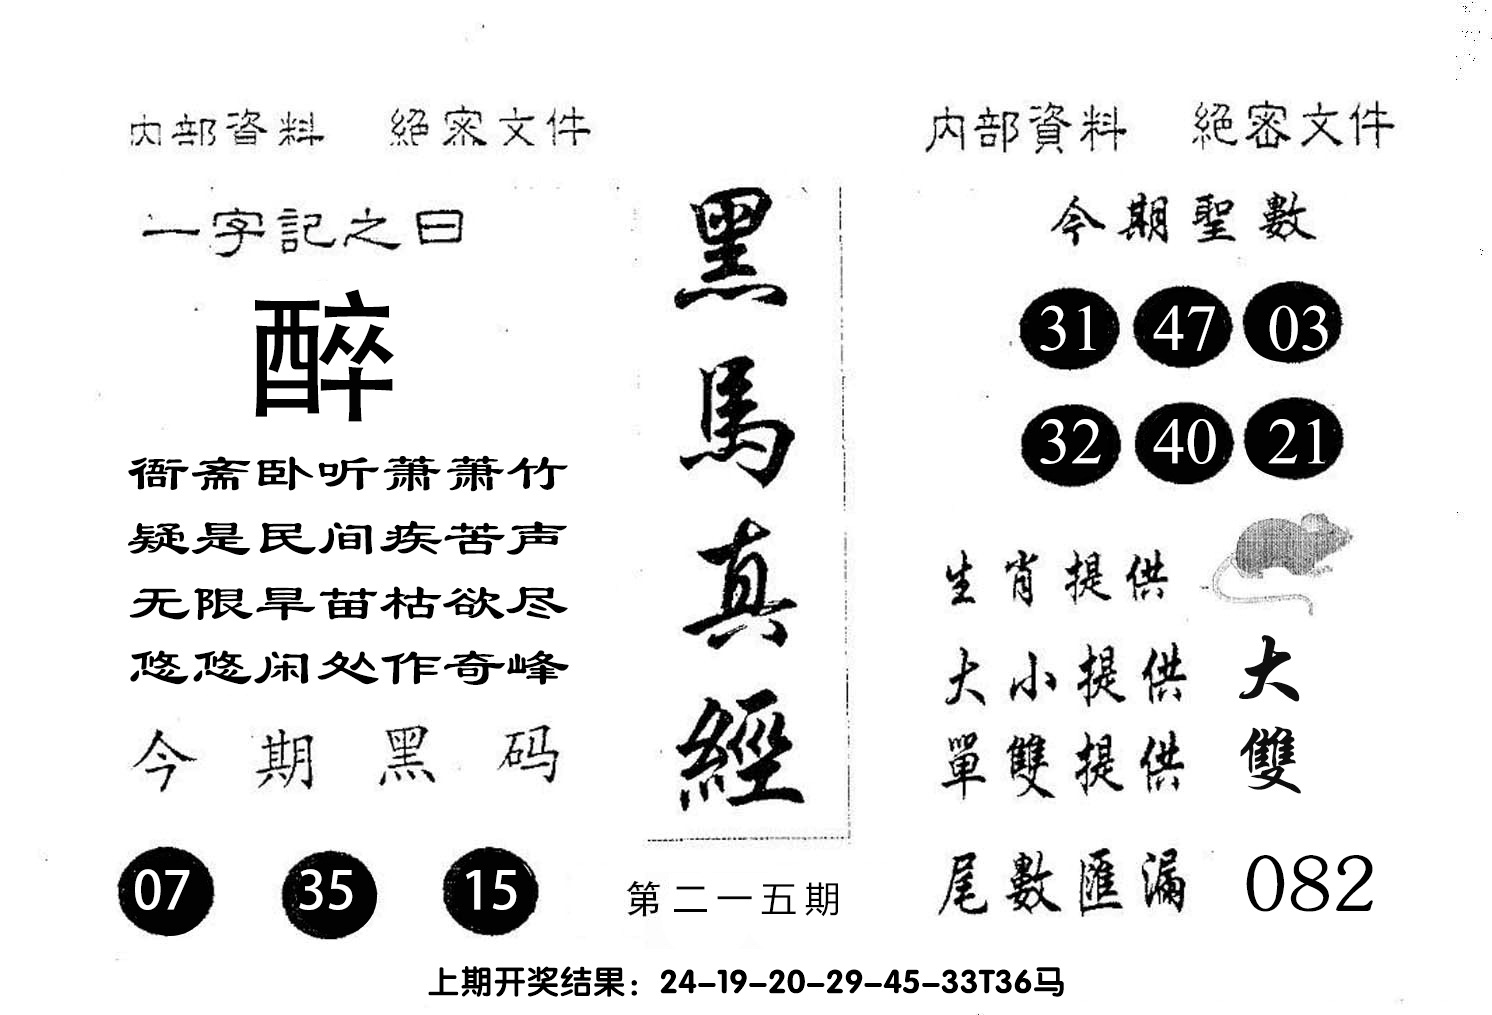 内部資料 絕密文件
一字記之曰
醉
衙斋卧听萧萧竹
疑是民间疾苦声
无限旱苗枯欲尽
悠悠闲处作奇峰
今期黑码
07 35 15
黑馬真經
第二一五期
内部資料 絕密文件
今期聖數
31 47 03
32 40 21
生肖提供
大小提供 大
單雙提供 雙
尾數匯漏 082
上期开奖结果：24-19-20-29-45-33T36马